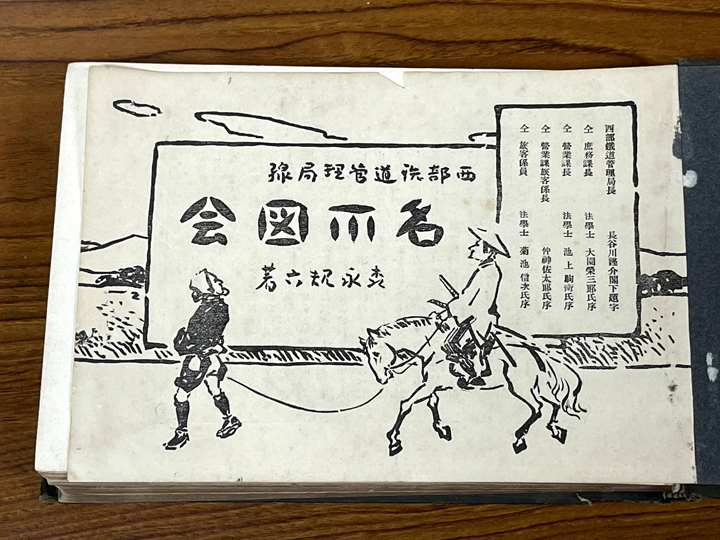 西部鐵道管理局長 長谷川謹介閣下題字
仝 庶務課長 法學士 大園榮三郎氏序
仝 營業課長 法學士 池上駒衛氏序
仝 營業課旅客係長 仲神佐太郎氏序
仝 旅客係員 法學士 菊池信次氏序
西部鉄道管理局線
名所図会
森永規六著